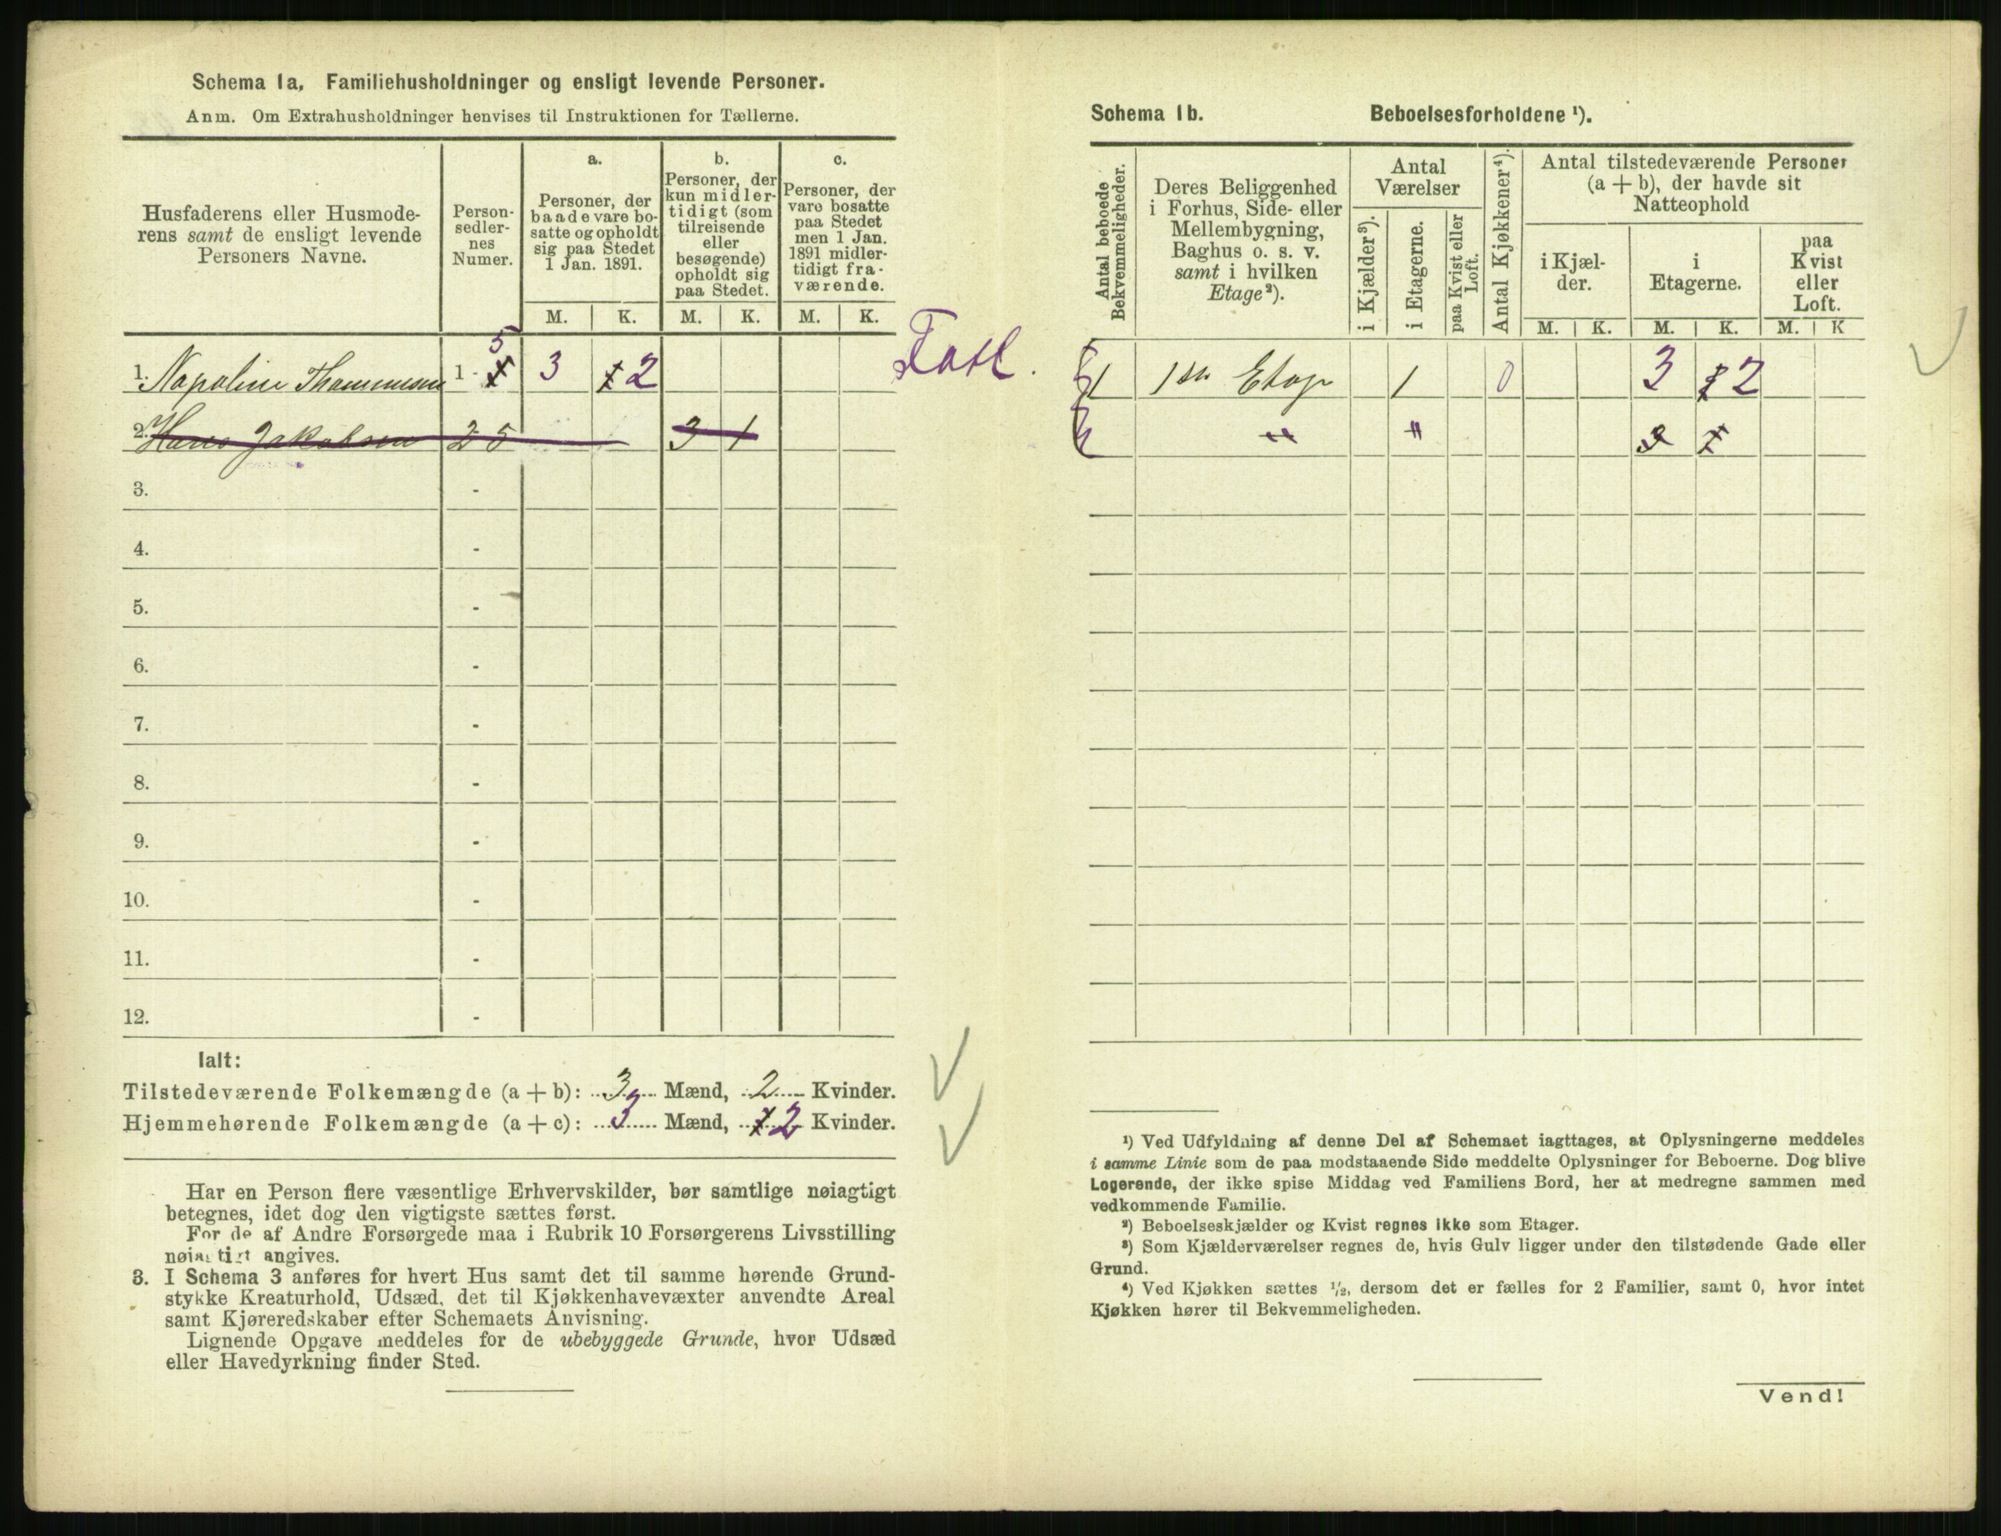 Schema 1a. Familiehusholdninger og ensligt levende Personer.
Anm. Om Extrahusholdninger henvises til Instruktionen for Tællerne.
Husfaderens eller Husmode-
rens samt de ensligt levende
Personers Navne.
Person-
sedler-
nes
Numer.
a.
Personer, der
baade vare bo-
satte og opholdt
sig paa Stedet
1 Jan. 1891.
b.
Personer, der
kun midler-
tidigt (som
tilreisende
eller
besøgende)
opholdt sig
paa Stedet.
c.
Personer, der
vare bosatte
paa Stedet
men 1 Jan.
1891 midler-
tidigt fra-
værende.
M. K. M. K. M. K.
1. Napoline Thommesen 1 - 5 3 2
2. Hans Jakobsen 2 5 3 1
3. -
4. -
5. -
6. -
7. -
8. -
9. -
10. -
11. -
12. -
Ialt:
Tilstedeværende Folkemængde (a + b): 3 Mænd, 2 Kvinder.
Hjemmehørende Folkemængde (a + c): 3 Mænd, 2 Kvinder.
Har en Person flere væsentlige Erhvervskilder, bør samtlige nøiagtigt
betegnes, idet dog den vigtigste sættes først.
For de af Andre Forsørgede maa i Rubrik 10 Forsørgerens Livsstilling
nøiagtigt angives.
3. I Schema 3 anføres for hvert Hus samt det til samme hørende Grund-
stykke Kreaturhold, Udsæd, det til Kjøkkenhavevæxter anvendte Areal
samt Kjøreredskaber efter Schemaets Anvisning.
Lignende Opgave meddeles for de ubebyggede Grunde, hvor Udsæd
eller Havedyrkning finder Sted.
Schema 1b. Beboelsesforholdene ¹).
Antal beboede
Bekvemmeligheder.
Deres Beliggenhed
i Forhus, Side- eller
Mellembygning,
Baghus o. s. v.
samt i hvilken
Etage²).
Antal
Værelser
i Kjælder³).
i Etagerne.
paa Kvist eller
Loft.
Antal Kjøkkener⁴).
Antal tilstedeværende Personer
(a + b), der havde sit
Natteophold
i Kjæl-
der.
i
Etagerne.
paa
Kvist
eller
Loft.
M. K. M. K. M. K
1 1ste Etage 1 0 3 2
" "
¹) Ved Udfyldning af denne Del af Schemaet iagttages, at Oplysningerne meddeles
i samme Linie som de paa modstaaende Side meddelte Oplysninger for Beboerne. Dog blive
Logerende, der ikke spise Middag ved Familiens Bord, her at medregne sammen med
vedkommende Familie.
²) Beboelseskjælder og Kvist regnes ikke som Etager.
³) Som Kjælderværelser regnes de, hvis Gulv ligger under den tilstødende Gade eller
Grund.
⁴) Ved Kjøkken sættes ½, dersom det er fælles for 2 Familier, samt 0, hvor intet
Kjøkken hører til Bekvemmeligheden.
Vend!